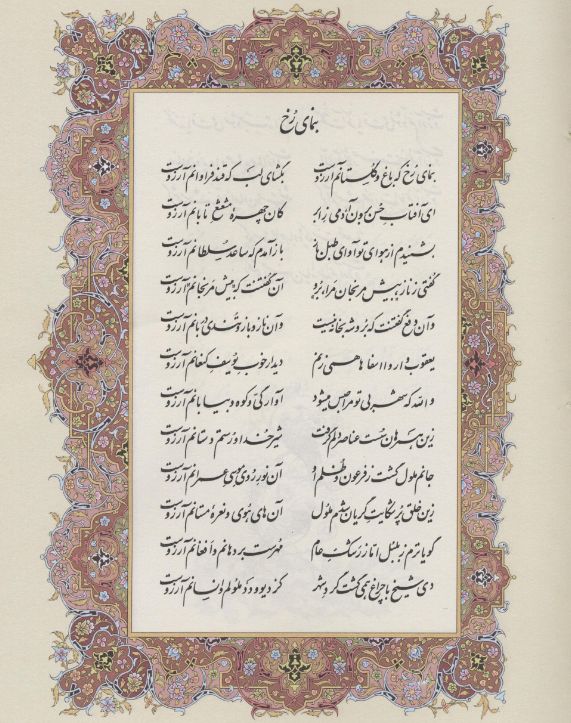 بنمای رُخ
بنمای رُخ که باغ و گلستانم آرزوست بگشای لب که قند فراوانم آرزوست
ای آفتاب حسن برون آ دمی ز ابر کان چهرهٔ مشعشع تابانم آرزوست
بشنیدم از هوای تو آوای طبل باز باز آمدم که ساعد سلطانم آرزوست
گفتی ز ناز بیش مرنجان مرا، برو آن گفتنت که بیش مرنجانم آرزوست
وآن دفع گفتنت که برو شه بخانه نیست وآن ناز و باز و تندی دربانم آرزوست
یعقوب وار وا اسفاها همی زنم دیدار خوب یوسف کنعانم آرزوست
و الله که شهر بی تو مرا حبس میشود آوارگی و کوه و بیابانم آرزوست
زین همرهان سست عناصر دلم گرفت شیر خدا و رستم دستانم آرزوست
جانم ملول گشت ز فرعون و ظلم او آن نور روی موسی عمرانم آرزوست
زین خلق پر شکایت گریان شدم ملول آن های هوی و نعرهٔ مستانم آرزوست
گویاترم ز بلبل اما ز رشک عام مهرست بر دهانم و افغانم آرزوست
دی شیخ با چراغ همی گشت گرد شهر کز دیو و دد ملولم و انسانم آرزوست